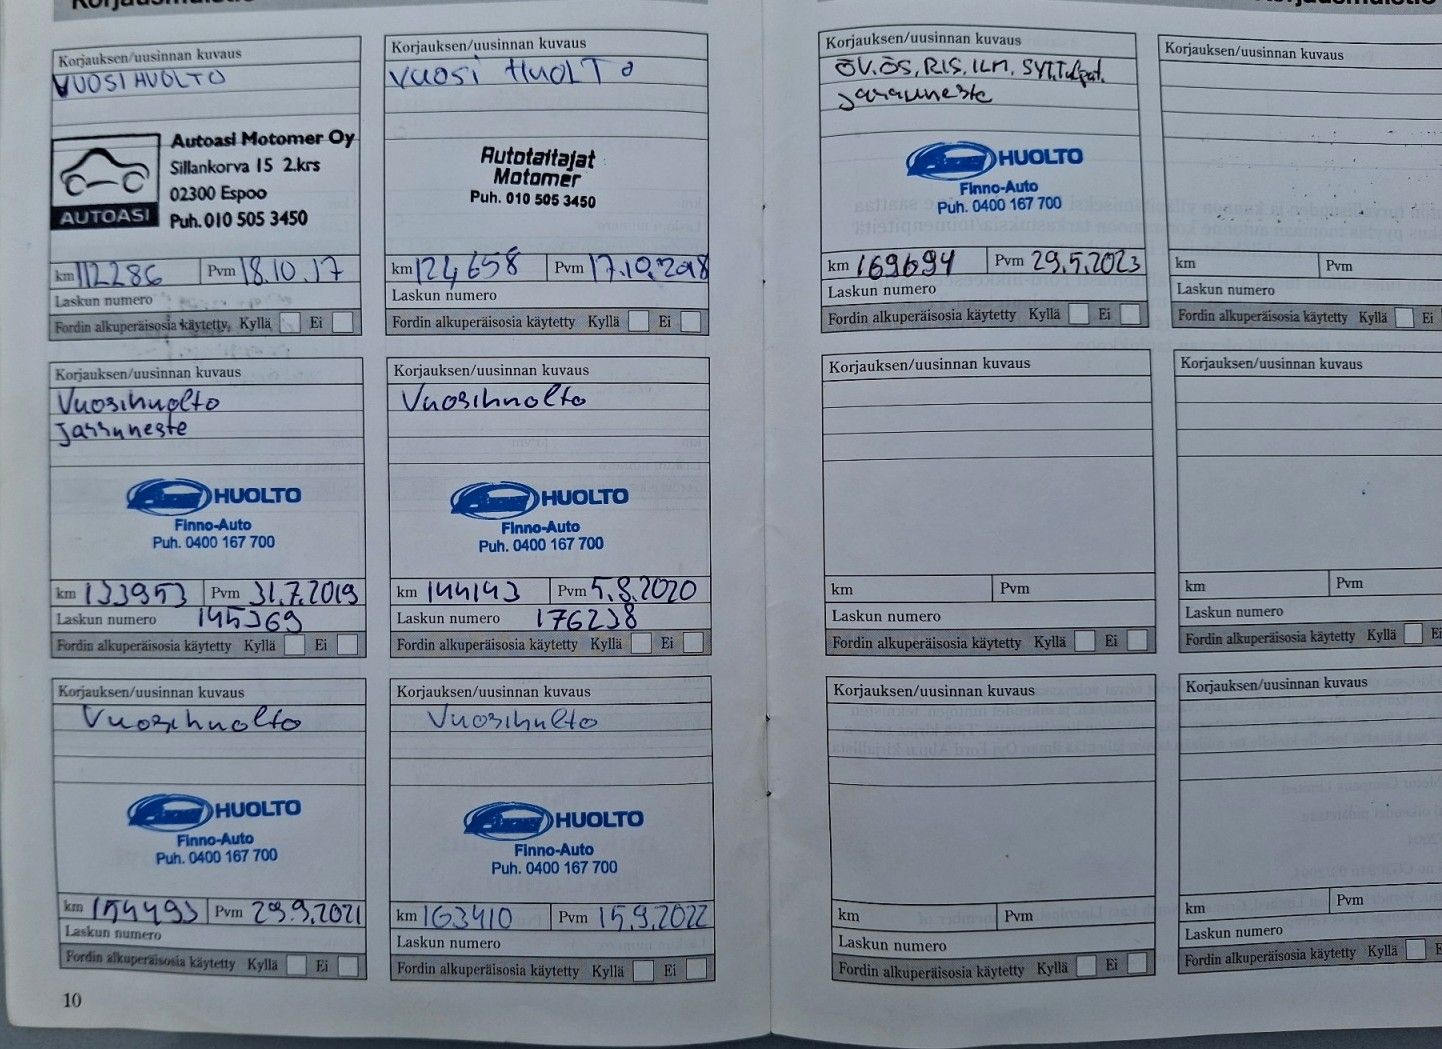 Korjauksen/uusinnan kuvaus
VUOSIHUOLTO
Autoasi Motomer Oy
Sillankorva 15 2.krs
02300 Espoo
AUTOASI
Puh. 010 505 3450
km 112286 Pvm 18.10.17
Laskun numero
Fordin alkuperäisosia käytetty, Kyllä Ei
Korjauksen/uusinnan kuvaus
VUOSI HUOLTO
Autotaitajat
Motomer
Puh. 010 505 3450
km 124658 Pvm 17.10.2018
Laskun numero
Fordin alkuperäisosia käytetty Kyllä Ei
Korjauksen/uusinnan kuvaus
Vuosihuolto
Jarruneste
HUOLTO
Finno-Auto
Puh. 0400 167 700
km 133953 Pvm 31.7.2019
Laskun numero 145369
Fordin alkuperäisosia käytetty Kyllä Ei
Korjauksen/uusinnan kuvaus
Vuosihuolto
HUOLTO
Finno-Auto
Puh. 0400 167 700
km 144143 Pvm 5.8.2020
Laskun numero 176238
Fordin alkuperäisosia käytetty Kyllä Ei
Korjauksen/uusinnan kuvaus
Vuosihuolto
HUOLTO
Finno-Auto
Puh. 0400 167 700
km 154493 Pvm 29.9.2021
Laskun numero
Fordin alkuperäisosia käytetty Kyllä Ei
Korjauksen/uusinnan kuvaus
Vuosihulto
HUOLTO
Finno-Auto
Puh. 0400 167 700
km 163410 Pvm 15.9.2022
Laskun numero
Fordin alkuperäisosia käytetty Kyllä Ei
10
Korjauksen/uusinnan kuvaus
ÖV.ÖS, RIS. ILM,
Jarruneste
HUOLTO
Finno-Auto
Puh. 0400 167 700
km 169694 Pvm 29.5.2023
Laskun numero
Fordin alkuperäisosia käytetty Kyllä Ei
Korjauksen/uusinnan kuvaus
km Pvm
Laskun numero
Fordin alkuperäisosia käytetty Kyllä
Korjauksen/uusinnan kuvaus
km Pvm
Laskun numero
Fordin alkuperäisosia käytetty Kyllä Ei
Korjauksen/uusinnan kuvaus
km Pvm
Laskun numero
Fordin alkuperäisosia käytetty Kyllä
Korjauksen/uusinnan kuvaus
km Pvm
Laskun numero
Fordin alkuperäisosia käytetty Kyllä Ei
Korjauksen/uusinnan kuvaus
km Pvm
Laskun numero
Fordin alkuperäisosia käytetty Kyllä